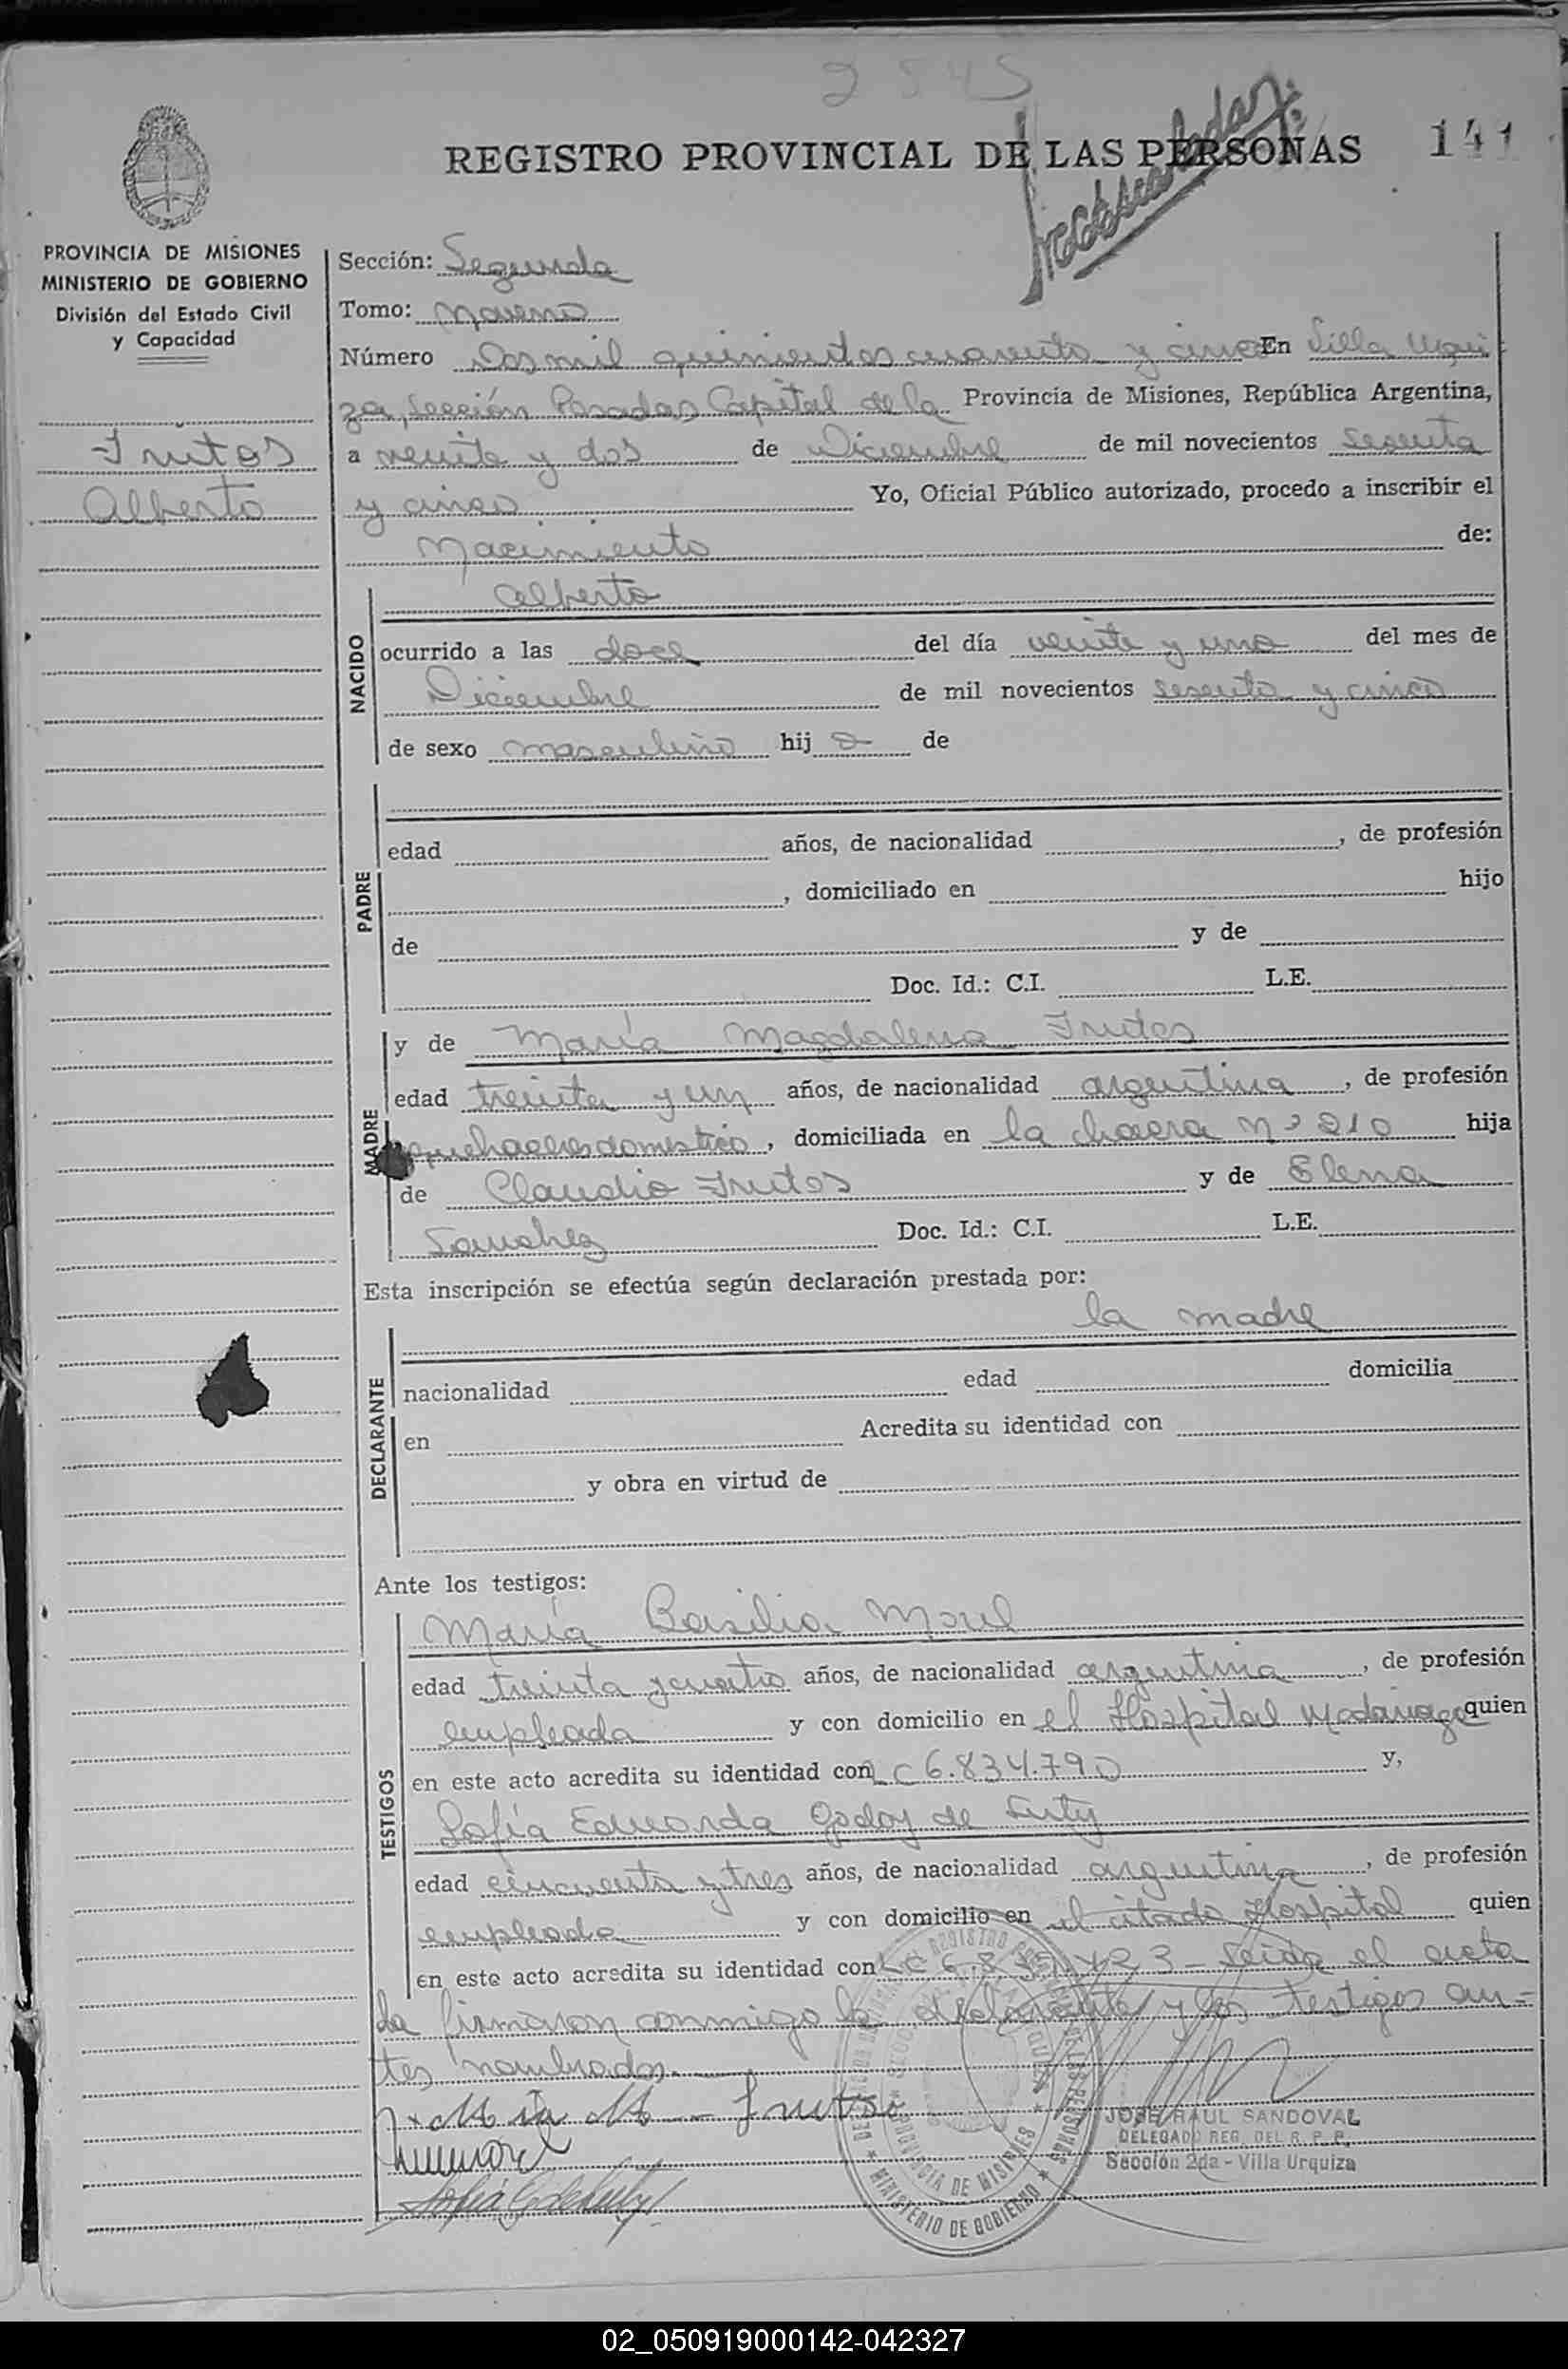 2545
REGISTRO PROVINCIAL DE LAS PERSONAS 141
PROVINCIA DE MISIONES
MINISTERIO DE GOBIERNO
División del Estado Civil
y Capacidad
Frutos
Alberto
Sección: Segunda
Tomo: Noveno
Número Dos mil quinientos cuarenta y cinco En Villa Urqui
za, Sección Posadas Capital de la Provincia de Misiones, República Argentina,
a veinte y dos de Diciembre de mil novecientos sesenta
y cinco Yo, Oficial Público autorizado, procedo a inscribir el
Nacimiento de:
NACIDO
Alberto
ocurrido a las doce del día veinte y uno del mes de
Diciembre de mil novecientos sesenta y cinco
de sexo masculino hij o de
PADRE
edad años, de nacionalidad , de profesión
, domiciliado en hijo
de y de
Doc. Id.: C.I. L.E.
MADRE
y de María Magdalena Frutos
edad treinta y un años, de nacionalidad argentina , de profesión
quehaceres domestico, domiciliada en la chacra nº 210 hija
de Claudio Frutos y de Elena
Sanchez Doc. Id.: C.I. L.E.
Esta inscripción se efectúa según declaración prestada por:
la madre
DECLARANTE
nacionalidad edad domicilia
en Acredita su identidad con
y obra en virtud de
Ante los testigos:
TESTIGOS
María Basilia Morel
edad treinta y cuatro años, de nacionalidad argentina , de profesión
empleada y con domicilio en el Hospital Madariaga quien
en este acto acredita su identidad con LC 6.834.790 y,
Sofía Eduarda Godoy de
edad cincuenta y tres años, de nacionalidad argentina , de profesión
empleada y con domicilio en el citado Hospital quien
en este acto acredita su identidad con LC 6.8 423 - Leida el acta
la firmaron conmigo la declarante y los testigos an-
tes nombrados.
Frutos
JOSE RAUL SANDOVAL
DELEGADO REG. DEL R. P. P.
Sección 2da - Villa Urquiza
MINISTERIO DE GOBIERNO
PROVINCIA DE MISIONES
02_050919000142-042327